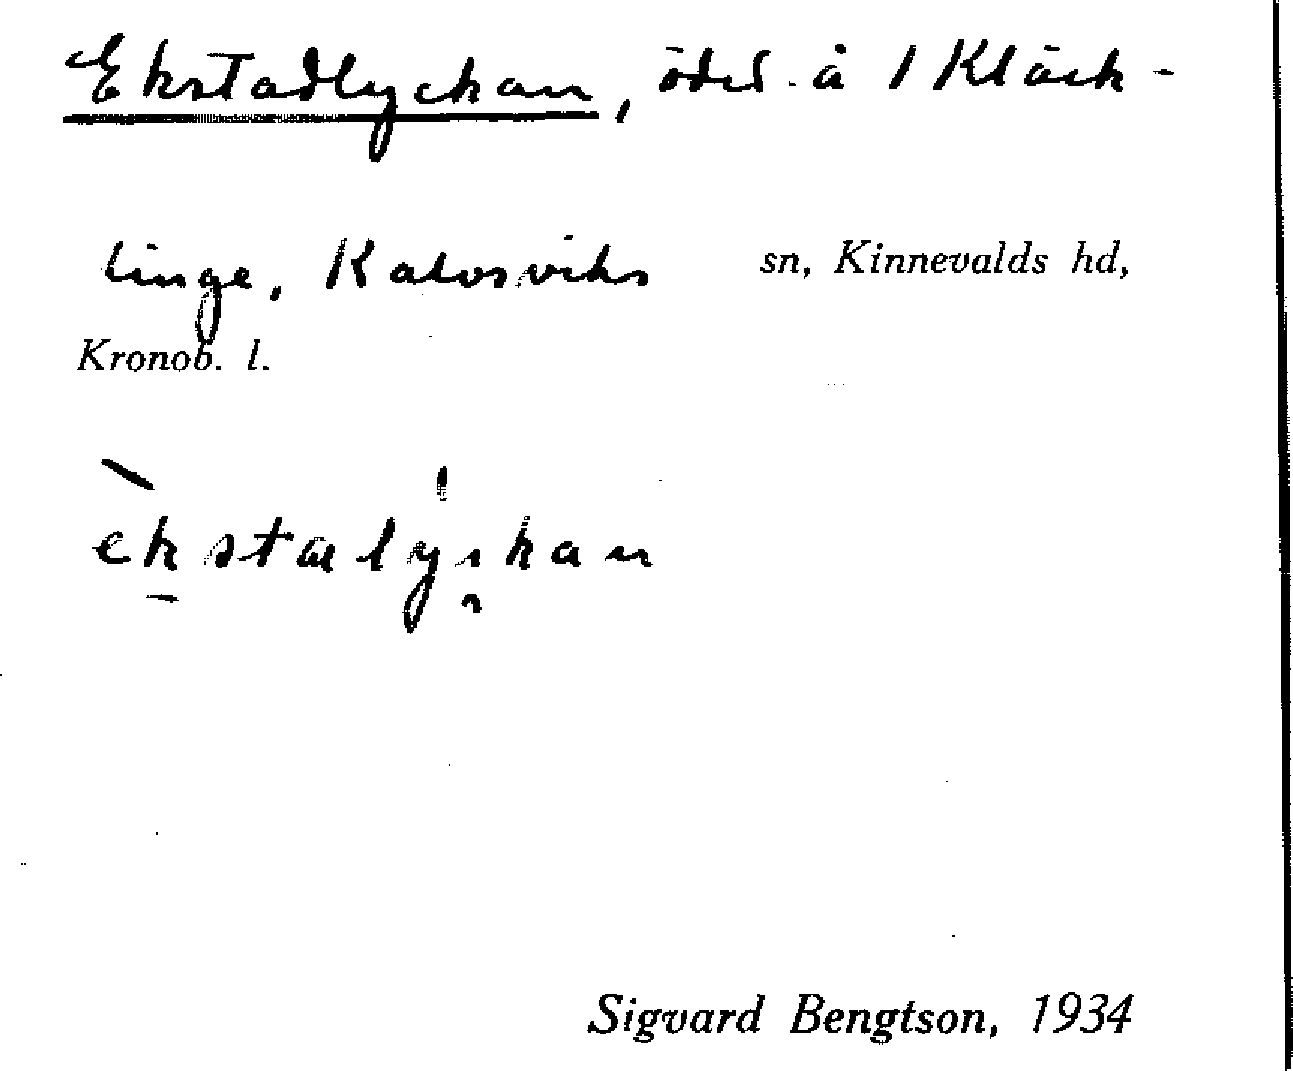 Ekstadlychan, ödel. å 1 Kläck-
linge, Kalvsviks sn, Kinnevalds hd,
Kronob. l.
ekstalyskan
Sigvard Bengtson, 1934